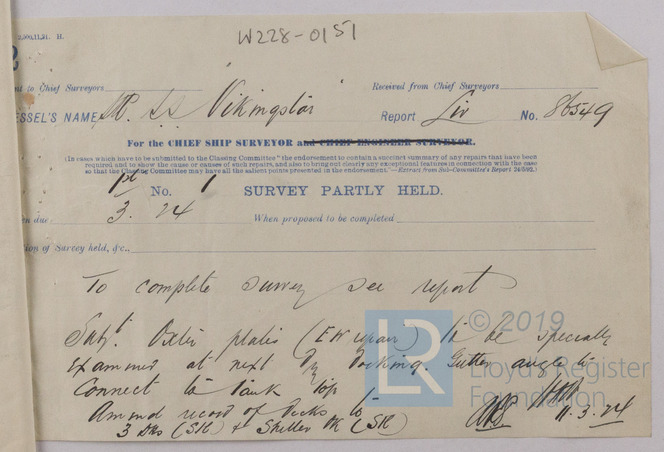 W228-0151
2,000,11,21. H.
nt to Chief Surveyors
Received from Chief Surveyors
ESSEL'S NAME SS Vikingstar Report Liv No. 86549
For the CHIEF SHIP SURVEYOR and CHIEF ENGINEER SURVEYOR.
(In cases which have to be submitted to the Classing Committee "the endorsement to contain a succinct summary of any repairs that have been
required and to show the cause or causes of such repairs, and also to bring out clearly any exceptional features in connection with the case
so that the Classing Committee may have all the salient points presented in the endorsement."—Extract from Sub-Committee's Report 24/5/02.)
1st No. 1 SURVEY PARTLY HELD.
en due 3. 24 When proposed to be completed
tion of Survey held, &c.,
To complete survey see report
Subt. Oxter plates (EW repair) to be specially
examined at next Dry Docking. Gutter angle to
Connect to Tank top
Amend record of Decks to
3 Dks (Stl) & Shelter Dk (Stl)
11.3.24
LR © 2019
Lloyd's Register
Foundation